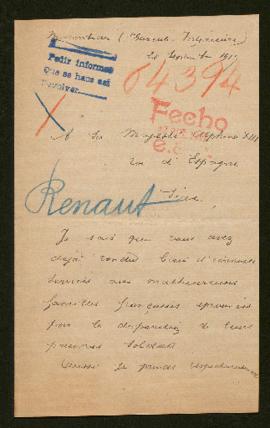 20 Septembre
Pedir informes
Que se haga así
Devolver
64394
Fecho
A Sa Majesté Alphonse XIII
roi d'Espagne
Renaut
Sire,
Je sais que vous avez
déjà rendu bien d'éminents
services aux malheureuses
familles françaises éprouvées
par la disparition de leurs
pauvres soldats